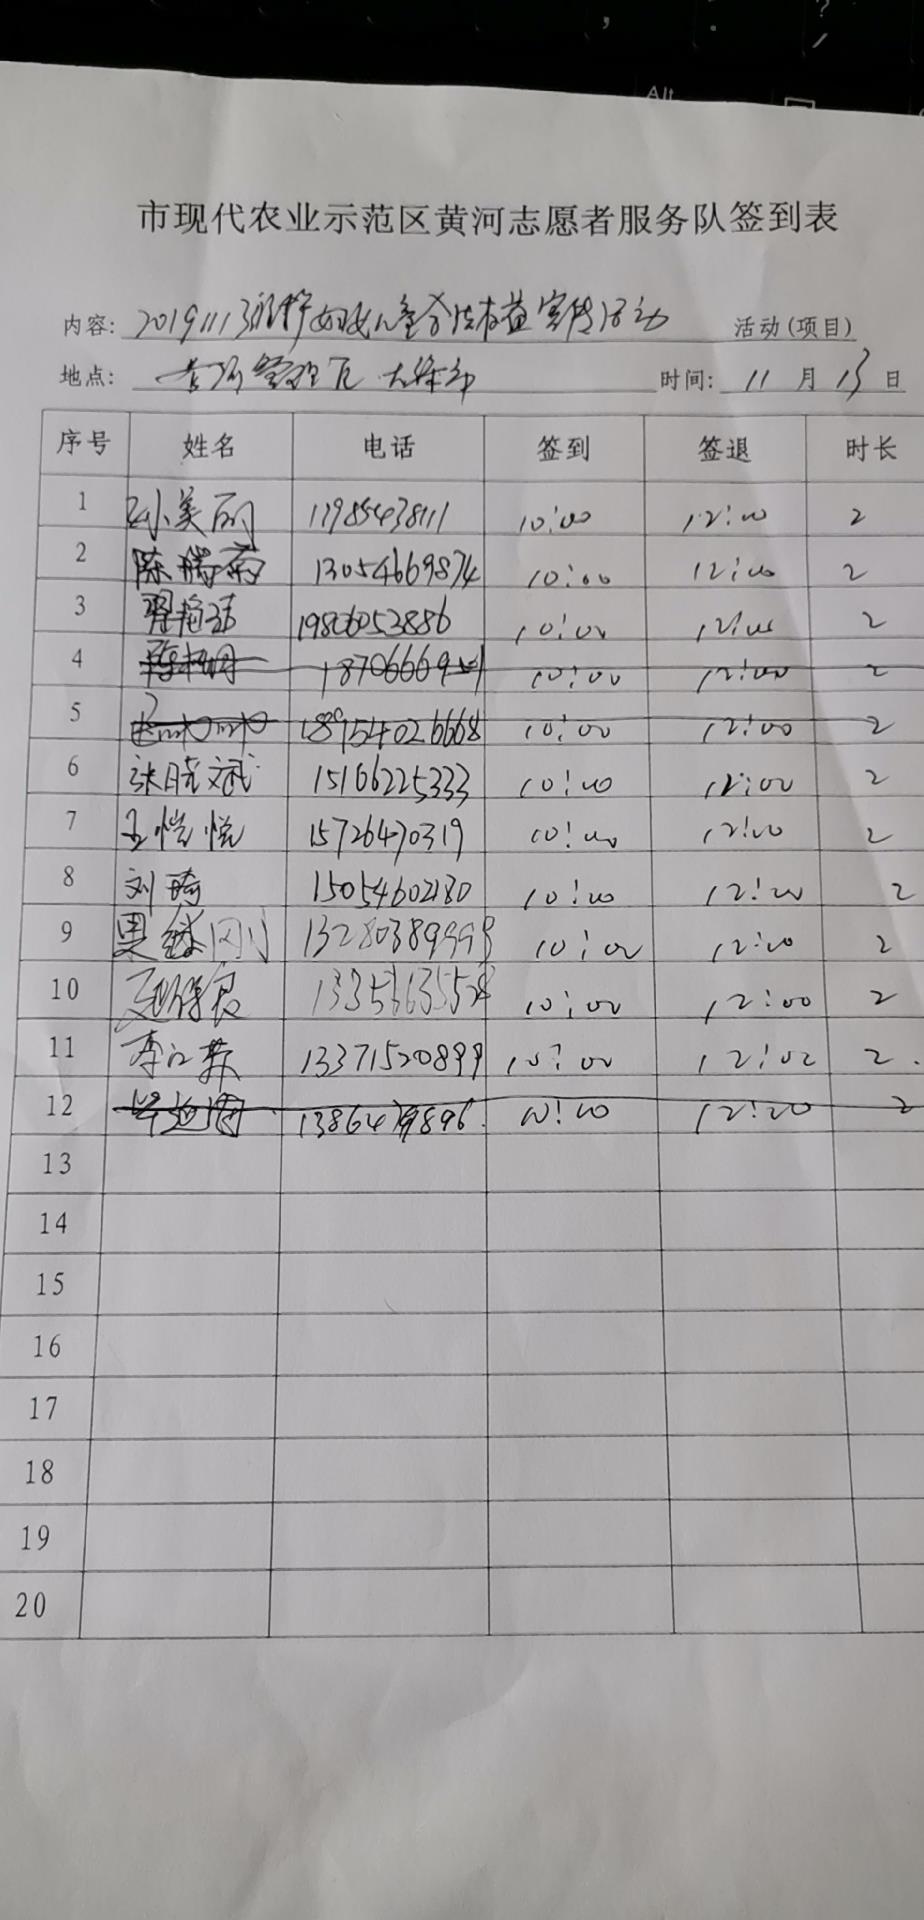 Alt
市现代农业示范区黄河志愿者服务队签到表
内容: 20191113维护妇女儿童合法权益宣传活动 活动(项目)
地点: 时间: 11 月 13 日
序号 姓名 电话 签到 签退 时长
1 孙美丽 17985438111 10:00 12:00 2
2 陈瑞 13054669874 10:00 12:00 2
3 19806053886 10:00 12:00 2
4 10:00 12:00 2
5 10:00 12:00 2
6 张晓斌 15166225333 10:00 12:00 2
7 王恺悦 15726470319 10:00 12:00 2
8 刘琦 15054602180 10:00 12:00 2
9 刚 13280389999 10:00 12:00 2
10 10:00 12:00 2
11 李江燕 13371520899 10:00 12:00 2.
12 10:00 12:00 2
13
14
15
16
17
18
19
20